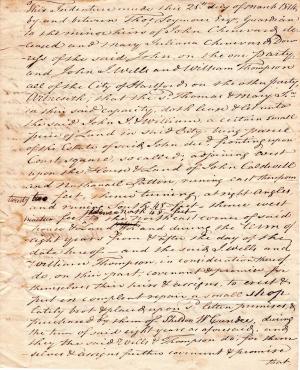 This Indenture made this 28th day of March 1814
by and between Thos Seymour Esqr. Guardian
to the minor heirs of John Chenevard, de-
ceased and Mary Juliana Chenevard Dow-
ress of the said John, on the one Party
and John I Wells and William Thompson
all of the City of Hartford, on the other party
Witnesseth, that the sd Thomas & Mary Ju-
in their said capacity, doth lease & let unto
the said John I & William, a certain small
piece of Land in said City being parcel
of the Estate of said John decd fronting upon
Court square, so called, adjoining west
upon the House & Land of John Caldwell
and Nathaniel Patten, running East
twenty two feet, thence running, at right Angles
feet, thence west
feet, to the corner of said
house & Land for and during the term of
eight years from & after the day of the
date hereof — and the said I Wells and
William Thompson in consideration thereof
do, on their part covenant & promise for
themselves their heirs & assigns, to erect &
put in complete repair a small shop
lately bot & placed upon sd Letten premises &
purchased by them of Sheldon W Candee, during
the term of said eight years as aforesaid, and
they the said Wells & Thompson do, for them
selves & assigns further covenant & promise
that